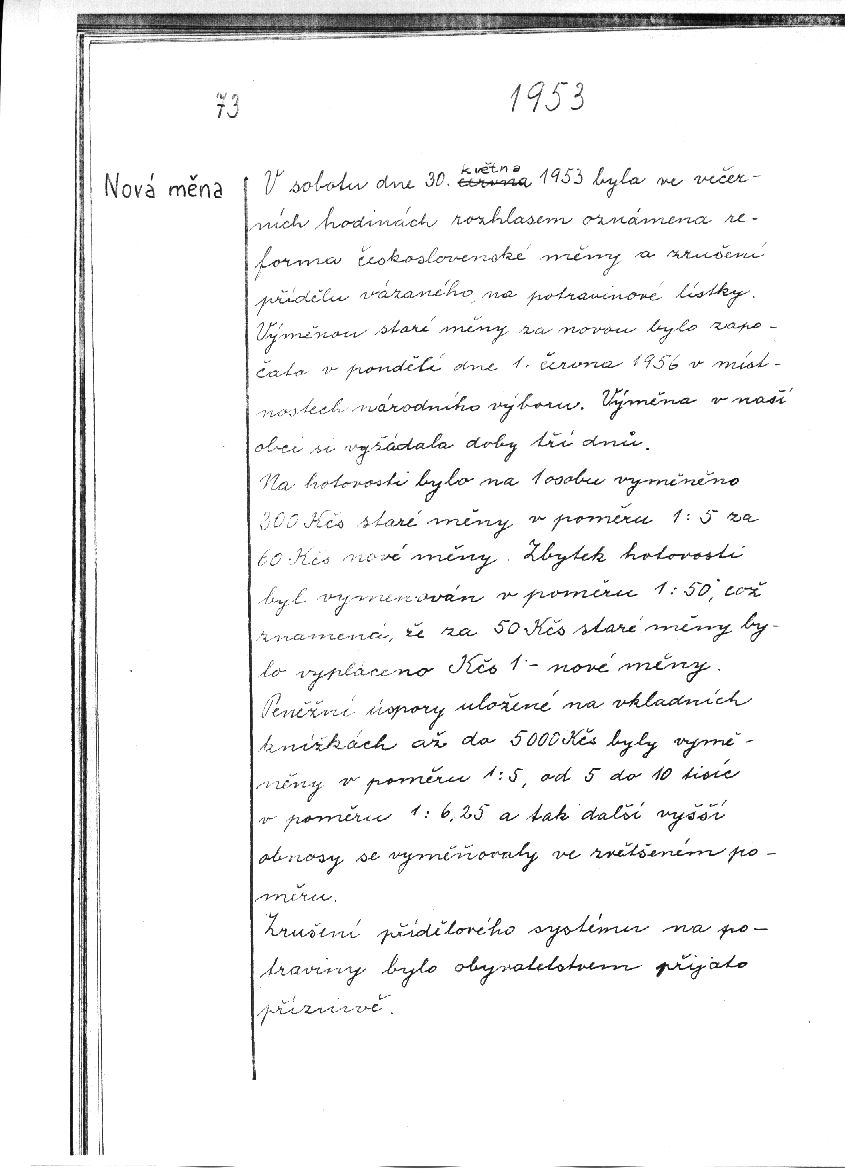 73
1953
Nová měna
V sobotu dne 30. června května 1953 byla ve večer-
ních hodinách rozhlasem oznámena re-
forma československé měny a zrušení
přídělu vázaného na potravinové lístky.
Výměnou staré měny za novou bylo zapo-
čato v pondělí dne 1. června 1956 v míst-
nostech národního výboru. Výměna v naší
obci si vyžádala doby tří dnů.
Na hotovosti bylo na 1 osobu vyměněno
300 Kčs staré měny v poměru 1:5 za
60 Kčs nové měny. Zbytek hotovosti
byl vymenován v poměru 1:50, což
znamená, že za 50 Kčs staré měny by-
lo vypláceno Kčs 1- nové měny.
Peněžní úspory uložené na vkladních
knížkách až do 5000 Kčs byly vymě-
něny v poměru 1:5, od 5 do 10 tisíc
v poměru 1:6,25 a tak další vyšší
obnosy se vyměňovaly ve zvětšeném po-
měru.
Zrušení přídělového systému na po-
traviny bylo obyvatelstvem přijato
příznivě.